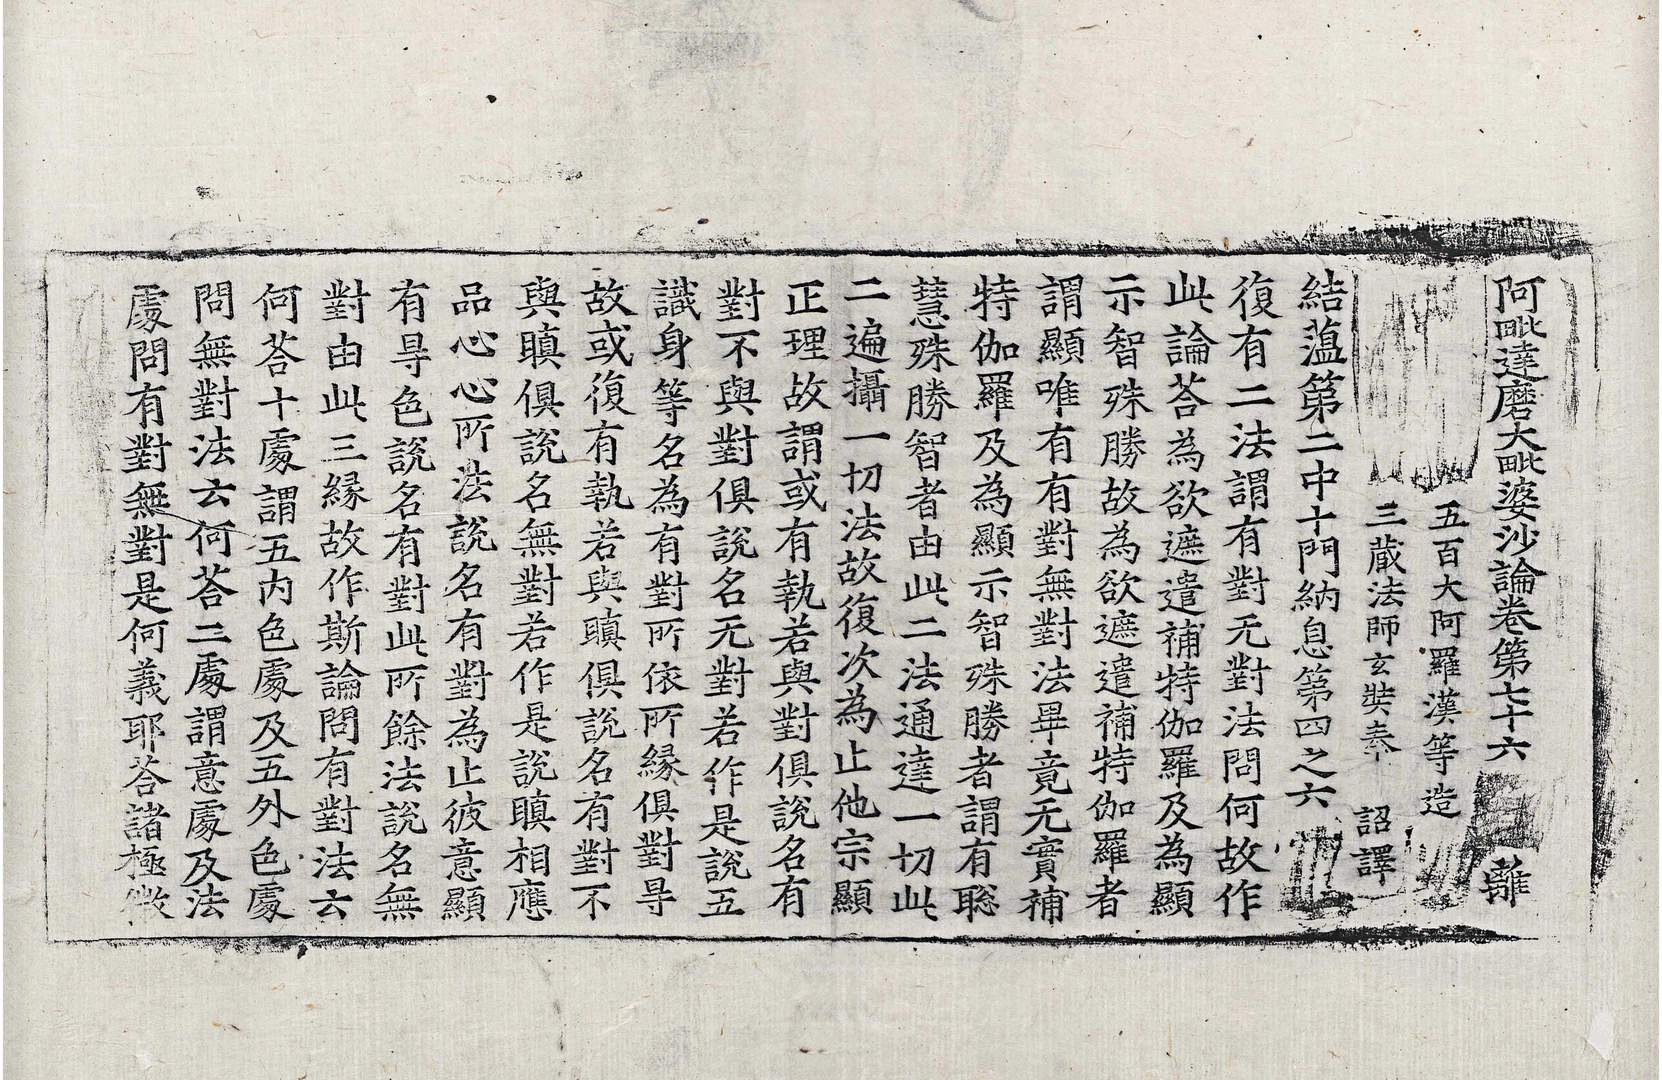 阿毗達磨大毗婆沙論卷第七十六 蘺
五百大阿羅漢等造
三藏法師玄奘奉 詔譯
結薀第二中十門納息第四之六
復有二法謂有對无對法問何故作
此論荅為欲遮遣補特伽羅及為顯
示智殊勝故為欲遮遣補特伽羅者
謂顯唯有有對無對法畢竟无實補
特伽羅及為顯示智殊勝者謂有聡
慧殊勝智者由此二法通達一切此
二遍攝一切法故復次為止他宗顯
正理故謂或有執若與對俱說名有
對不與對俱說名无對若作是說五
識身等名為有對所依所緣俱對㝵
故或復有執若與瞋俱說名有對不
與瞋俱說名無對若作是說瞋相應
品心心所法說名有對為止彼意顯
有㝵色說名有對此所餘法說名無
對由此三緣故作斯論問有對法云
何荅十處謂五内色處及五外色處
問無對法云何荅二處謂意處及法
處問有對無對是何義耶荅諸極微